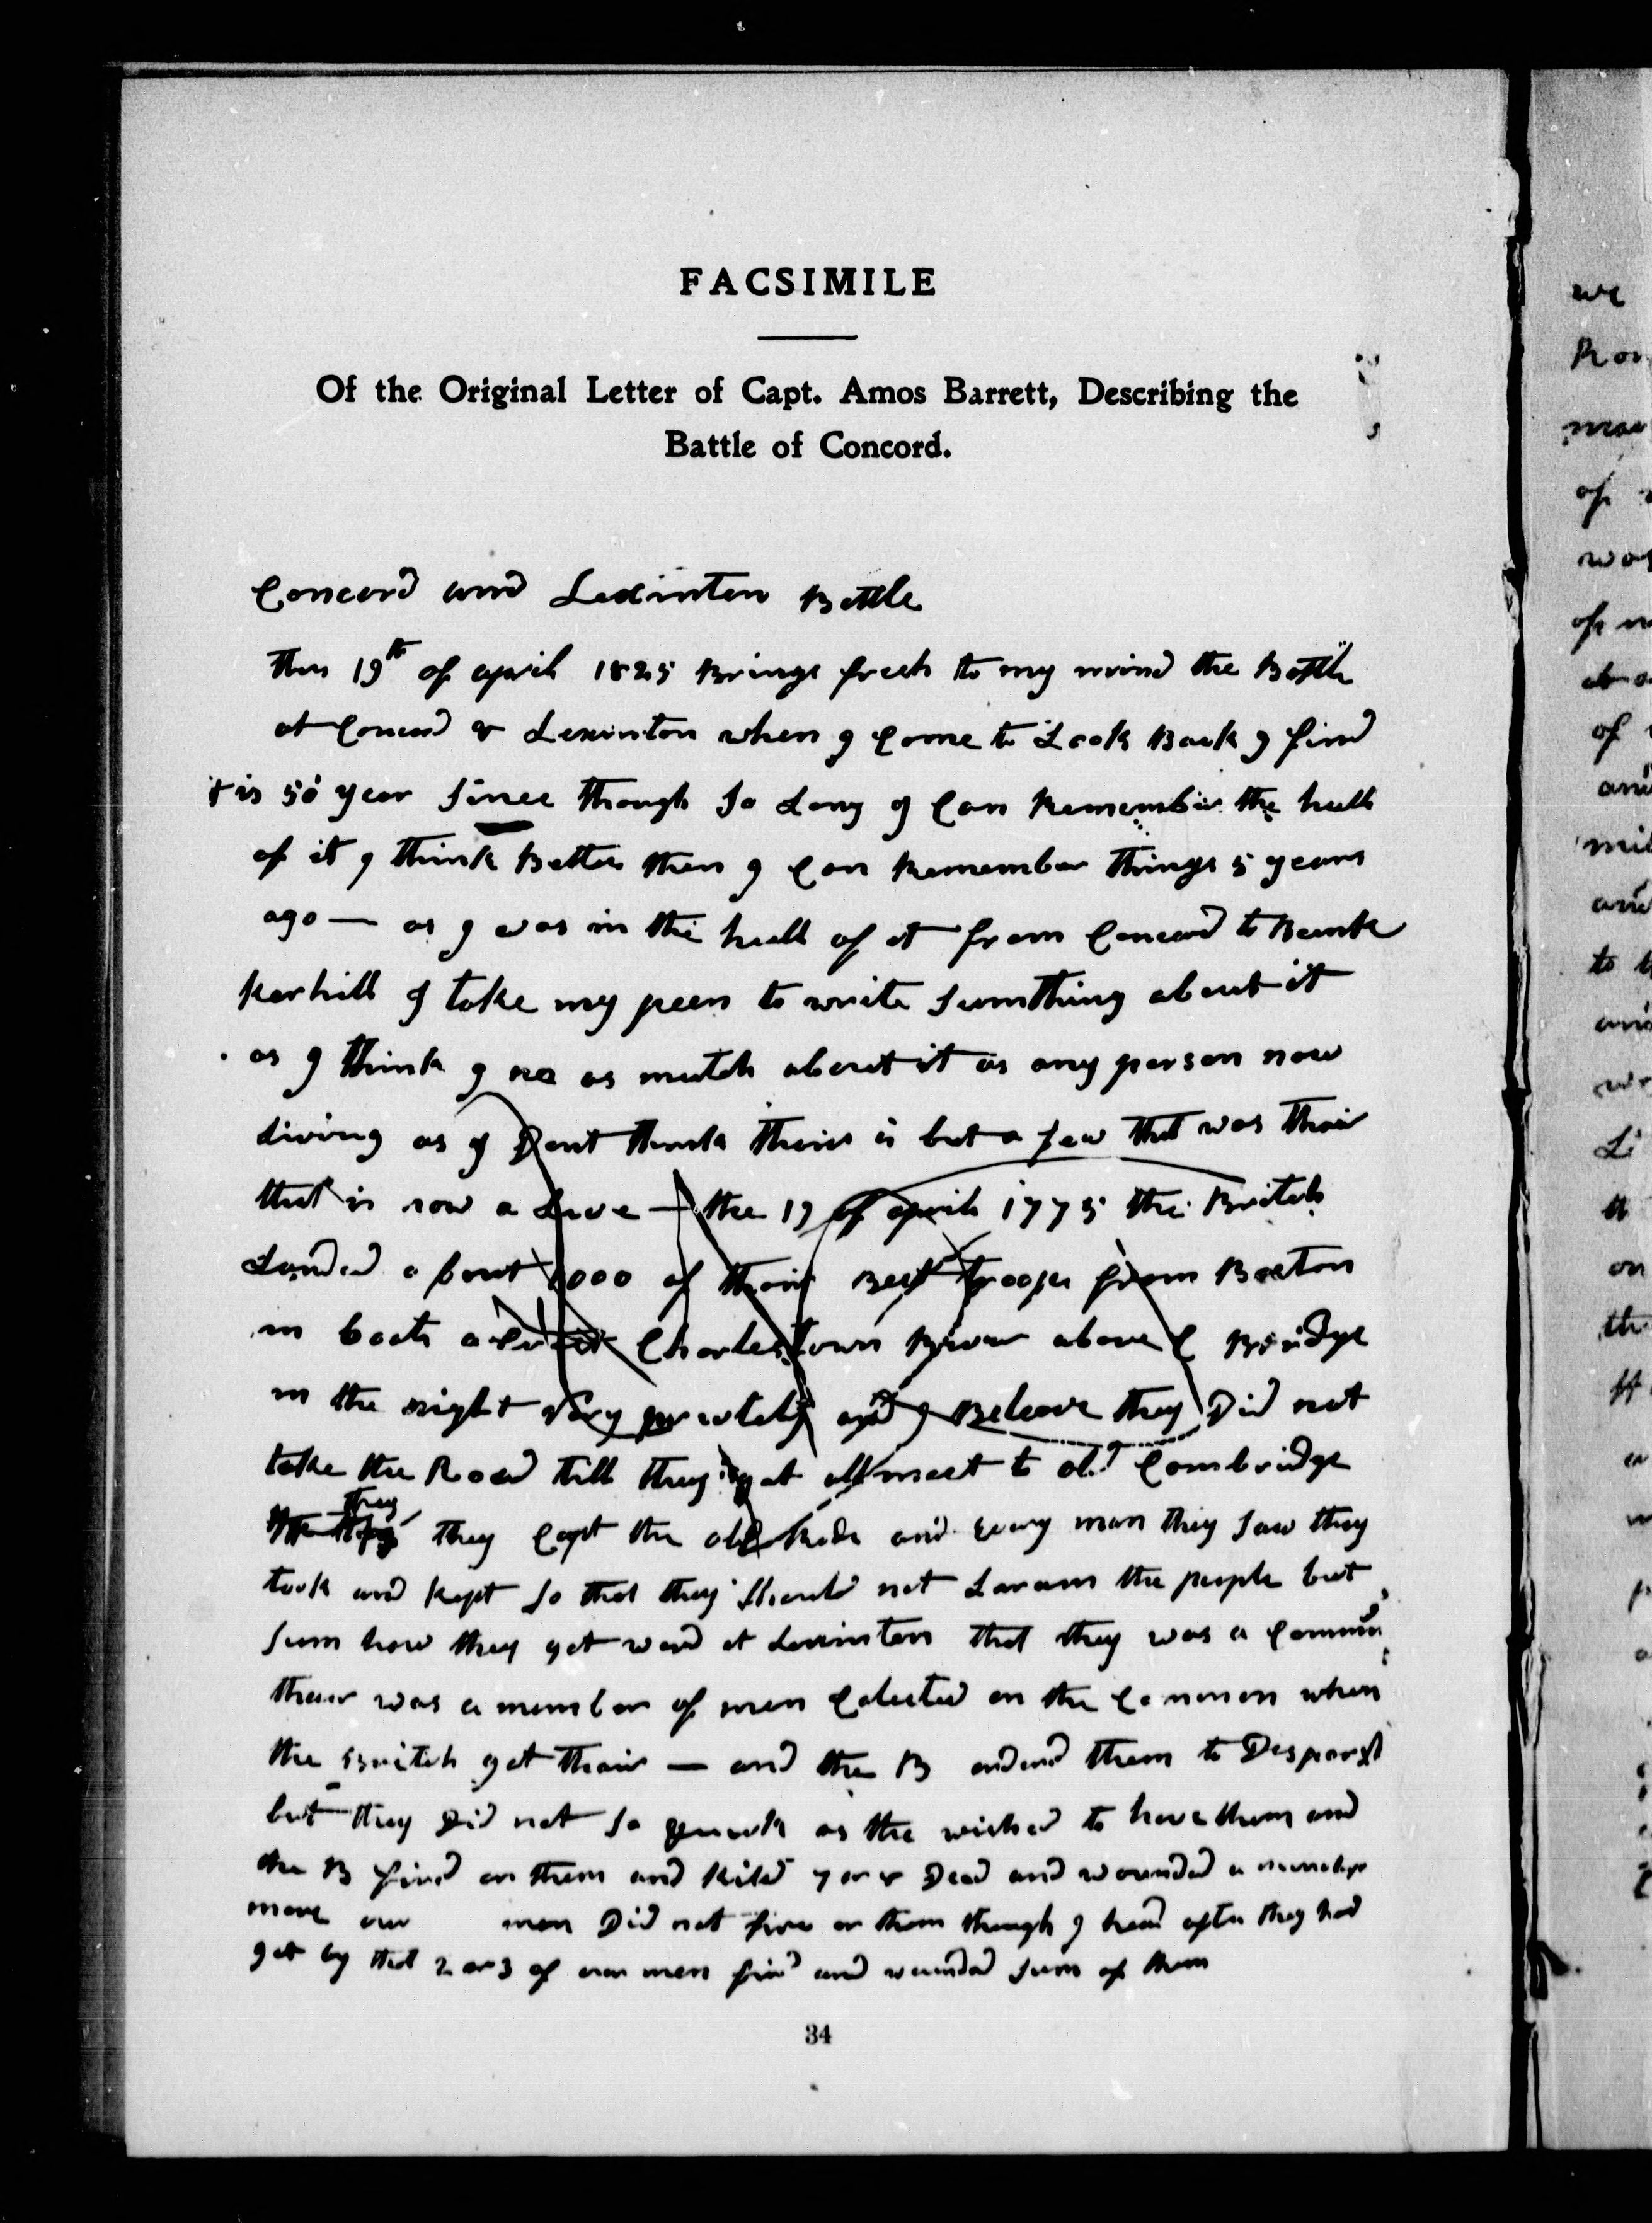 FACSIMILE
Of the Original Letter of Capt. Amos Barrett, Describing the
Battle of Concord.
Concord and Lexinton Battle
the 19th of april 1825 Brings fresh to my mind the Battle
at Concord & Lexinton when I Come to Look Back I find
it is 50 year Since though So Long I Can Remember the hull
of it I think Better then I Can Remember things 5 years
ago — as I was in the hull of it from Concord to Bunk
kerhill I take my peen to write Sumthing about it
as I think I no as mutch about it as any person now
Living as I Dont think thair is but a few that was thair
that is now a Live — the 19 of april 1775 the British
Landed a bout 1000 of thair Best troops from Boston
in boats Charlestown River above C Bridge
in the night very privately and I Beleave they Did not
take the Road till they got allmost to old Cambridge
they
they cept the old Rode and Every man they Saw they
took and kept So that they Should not Laram the people but
Sum how they got word at Lexinton that they was a Comming
thair was a number of men Colected on the Common when
the British got thair — and the B orderd them to Desparst
but they Did not So quick as the wished to have them and
the B fired on them and kild 7 or 8 Dead and wounded a number
more our men Did not fire on them though I heard after they had
got by that 2 or 3 of our men fired and wounded Sum of them
34
we
of
was
of
to
on